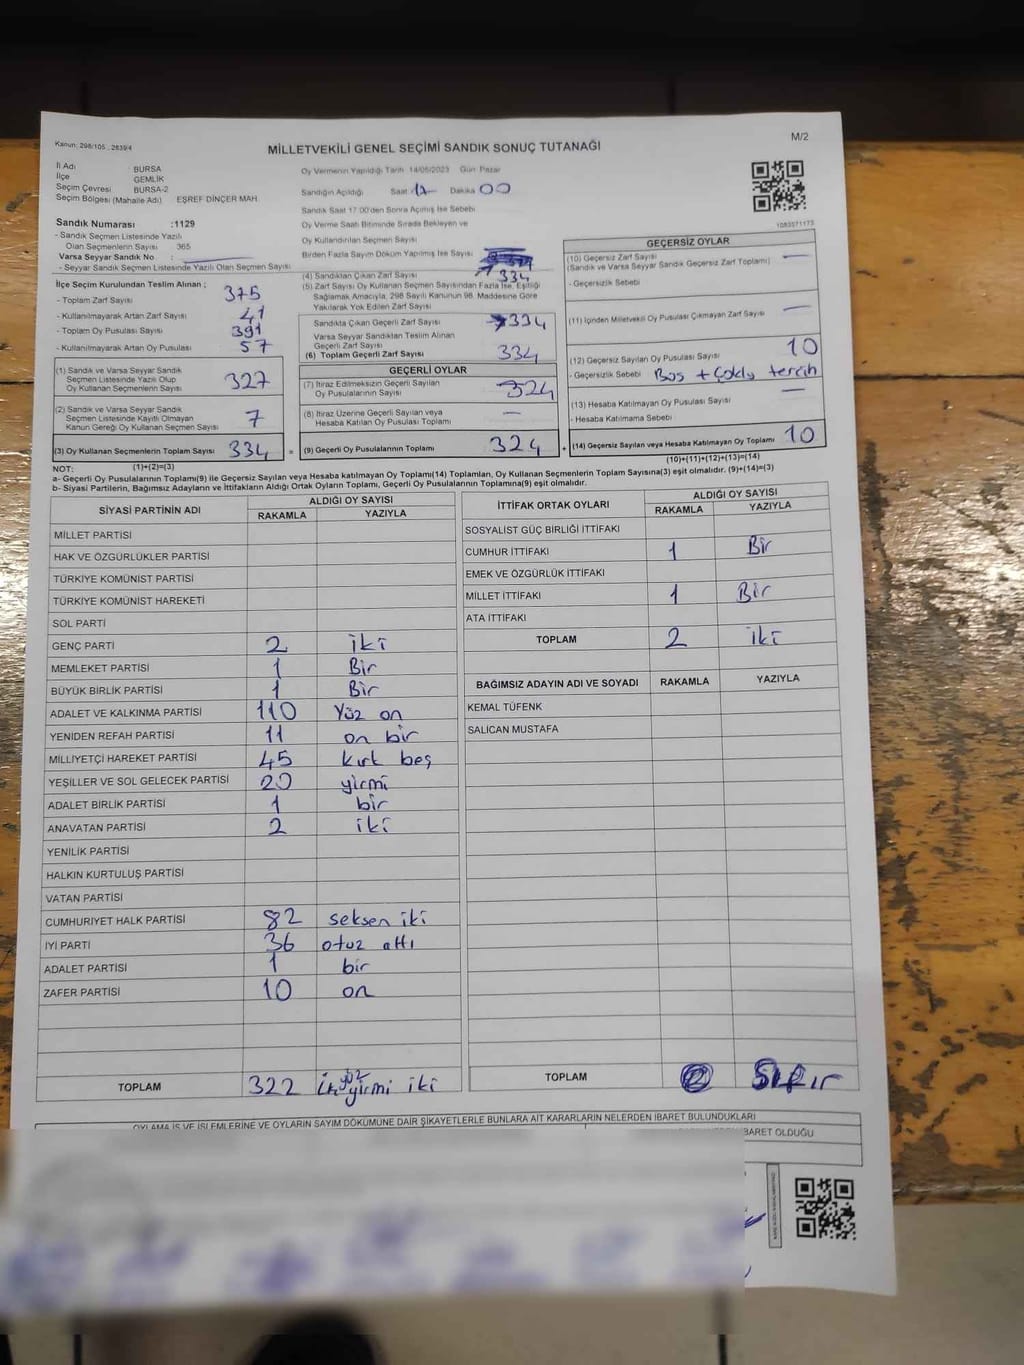 Kanun: 298/105 , 2839/4
M/2
MİLLETVEKİLİ GENEL SEÇİMİ SANDIK SONUÇ TUTANAĞI
İl Adı : BURSA
İlçe GEMLİK
Seçim Çevresi BURSA-2
Seçim Bölgesi (Mahalle Adı) EŞREF DİNÇER MAH.
Sandık Numarası :1129
- Sandık Seçmen Listesinde Yazılı
Olan Seçmenlerin Sayısı 365
Varsa Seyyar Sandık No :
- Seyyar Sandık Seçmen Listesinde Yazılı Olan Seçmen Sayısı
İlçe Seçim Kurulundan Teslim Alınan ;
- Toplam Zarf Sayısı 375
- Kullanılmayarak Artan Zarf Sayısı 41
- Toplam Oy Pusulası Sayısı 391
- Kullanılmayarak Artan Oy Pusulası 57
(1) Sandık ve Varsa Seyyar Sandık
Seçmen Listesinde Yazılı Olup
Oy Kullanan Seçmenlerin Sayısı 327
(2) Sandık ve Varsa Seyyar Sandık
Seçmen Listesinde Kayıtlı Olmayan
Kanun Gereği Oy Kullanan Seçmen Sayısı 7
(3) Oy Kullanan Seçmenlerin Toplam Sayısı 334
(1)+(2)=(3)
Oy Vermenin Yapıldığı Tarih 14/05/2023 Gün Pazar
Sandığın Açıldığı Saat 17 Dakika 00
Sandık Saat 17:00'den Sonra Açılmış İse Sebebi
Oy Verme Saati Bitiminde Sırada Bekleyen ve
Oy Kullandırılan Seçmen Sayısı
Birden Fazla Sayım Döküm Yapılmış İse Sayısı
(4) Sandıktan Çıkan Zarf Sayısı 334
(5) Zarf Sayısı Oy Kullanan Seçmen Sayısından Fazla İse, Eşitliği
Sağlamak Amacıyla, 298 Sayılı Kanunun 98. Maddesine Göre
Yakılarak Yok Edilen Zarf Sayısı
Sandıkta Çıkan Geçerli Zarf Sayısı 334
Varsa Seyyar Sandıktan Teslim Alınan
Geçerli Zarf Sayısı
(6) Toplam Geçerli Zarf Sayısı 334
GEÇERLİ OYLAR
(7) İtiraz Edilmeksizin Geçerli Sayılan
Oy Pusulalarının Sayısı 324
(8) İtiraz Üzerine Geçerli Sayılan veya
Hesaba Katılan Oy Pusulası Toplamı —
= (9) Geçerli Oy Pusulalarının Toplamı 324 +
1083571173
GEÇERSİZ OYLAR
(10) Geçersiz Zarf Sayısı —
(Sandık ve Varsa Seyyar Sandık Geçersiz Zarf Toplamı)
- Geçersizlik Sebebi
(11) İçinden Milletvekili Oy Pusulası Çıkmayan Zarf Sayısı —
(12) Geçersiz Sayılan Oy Pusulası Sayısı 10
- Geçersizlik Sebebi Boş + Çoklu tercih
(13) Hesaba Katılmayan Oy Pusulası Sayısı —
- Hesaba Katılmama Sebebi
(14) Geçersiz Sayılan veya Hesaba Katılmayan Oy Toplamı 10
(10)+(11)+(12)+(13)=(14)
NOT:
a- Geçerli Oy Pusulalarının Toplamı(9) ile Geçersiz Sayılan veya Hesaba katılmayan Oy Toplamı(14) Toplamları, Oy Kullanan Seçmenlerin Toplam Sayısına(3) eşit olmalıdır. (9)+(14)=(3)
b- Siyasi Partilerin, Bağımsız Adayların ve İttifakların Aldığı Ortak Oyların Toplamı, Geçerli Oy Pusulalarının Toplamına(9) eşit olmalıdır.
SİYASİ PARTİNİN ADI ALDIĞI OY SAYISI
RAKAMLA YAZIYLA
MİLLET PARTİSİ
HAK VE ÖZGÜRLÜKLER PARTİSİ
TÜRKİYE KOMÜNİST PARTİSİ
TÜRKİYE KOMÜNİST HAREKETİ
SOL PARTİ
GENÇ PARTİ 2 iki
MEMLEKET PARTİSİ 1 Bir
BÜYÜK BİRLİK PARTİSİ 1 Bir
ADALET VE KALKINMA PARTİSİ 110 Yüz on
YENİDEN REFAH PARTİSİ 11 on bir
MİLLİYETÇİ HAREKET PARTİSİ 45 kırk beş
YEŞİLLER VE SOL GELECEK PARTİSİ 20 yirmi
ADALET BİRLİK PARTİSİ 1 bir
ANAVATAN PARTİSİ 2 iki
YENİLİK PARTİSİ
HALKIN KURTULUŞ PARTİSİ
VATAN PARTİSİ
CUMHURİYET HALK PARTİSİ 82 seksen iki
İYİ PARTİ 36 otuz altı
ADALET PARTİSİ 1 bir
ZAFER PARTİSİ 10 on
TOPLAM 322 üçyüz yirmi iki
İTTİFAK ORTAK OYLARI ALDIĞI OY SAYISI
RAKAMLA YAZIYLA
SOSYALİST GÜÇ BİRLİĞİ İTTİFAKI
CUMHUR İTTİFAKI 1 Bir
EMEK VE ÖZGÜRLÜK İTTİFAKI
MİLLET İTTİFAKI 1 Bir
ATA İTTİFAKI
TOPLAM 2 iki
BAĞIMSIZ ADAYIN ADI VE SOYADI RAKAMLA YAZIYLA
KEMAL TÜFENK
SALİCAN MUSTAFA
TOPLAM Sıfır
OYLAMA İŞ VE İŞLEMLERİNE VE OYLARIN SAYIM DÖKÜMÜNE DAİR ŞİKAYETLERLE BUNLARA AİT KARARLARIN NELERDEN İBARET BULUNDUKLARI
BARET OLDUĞU